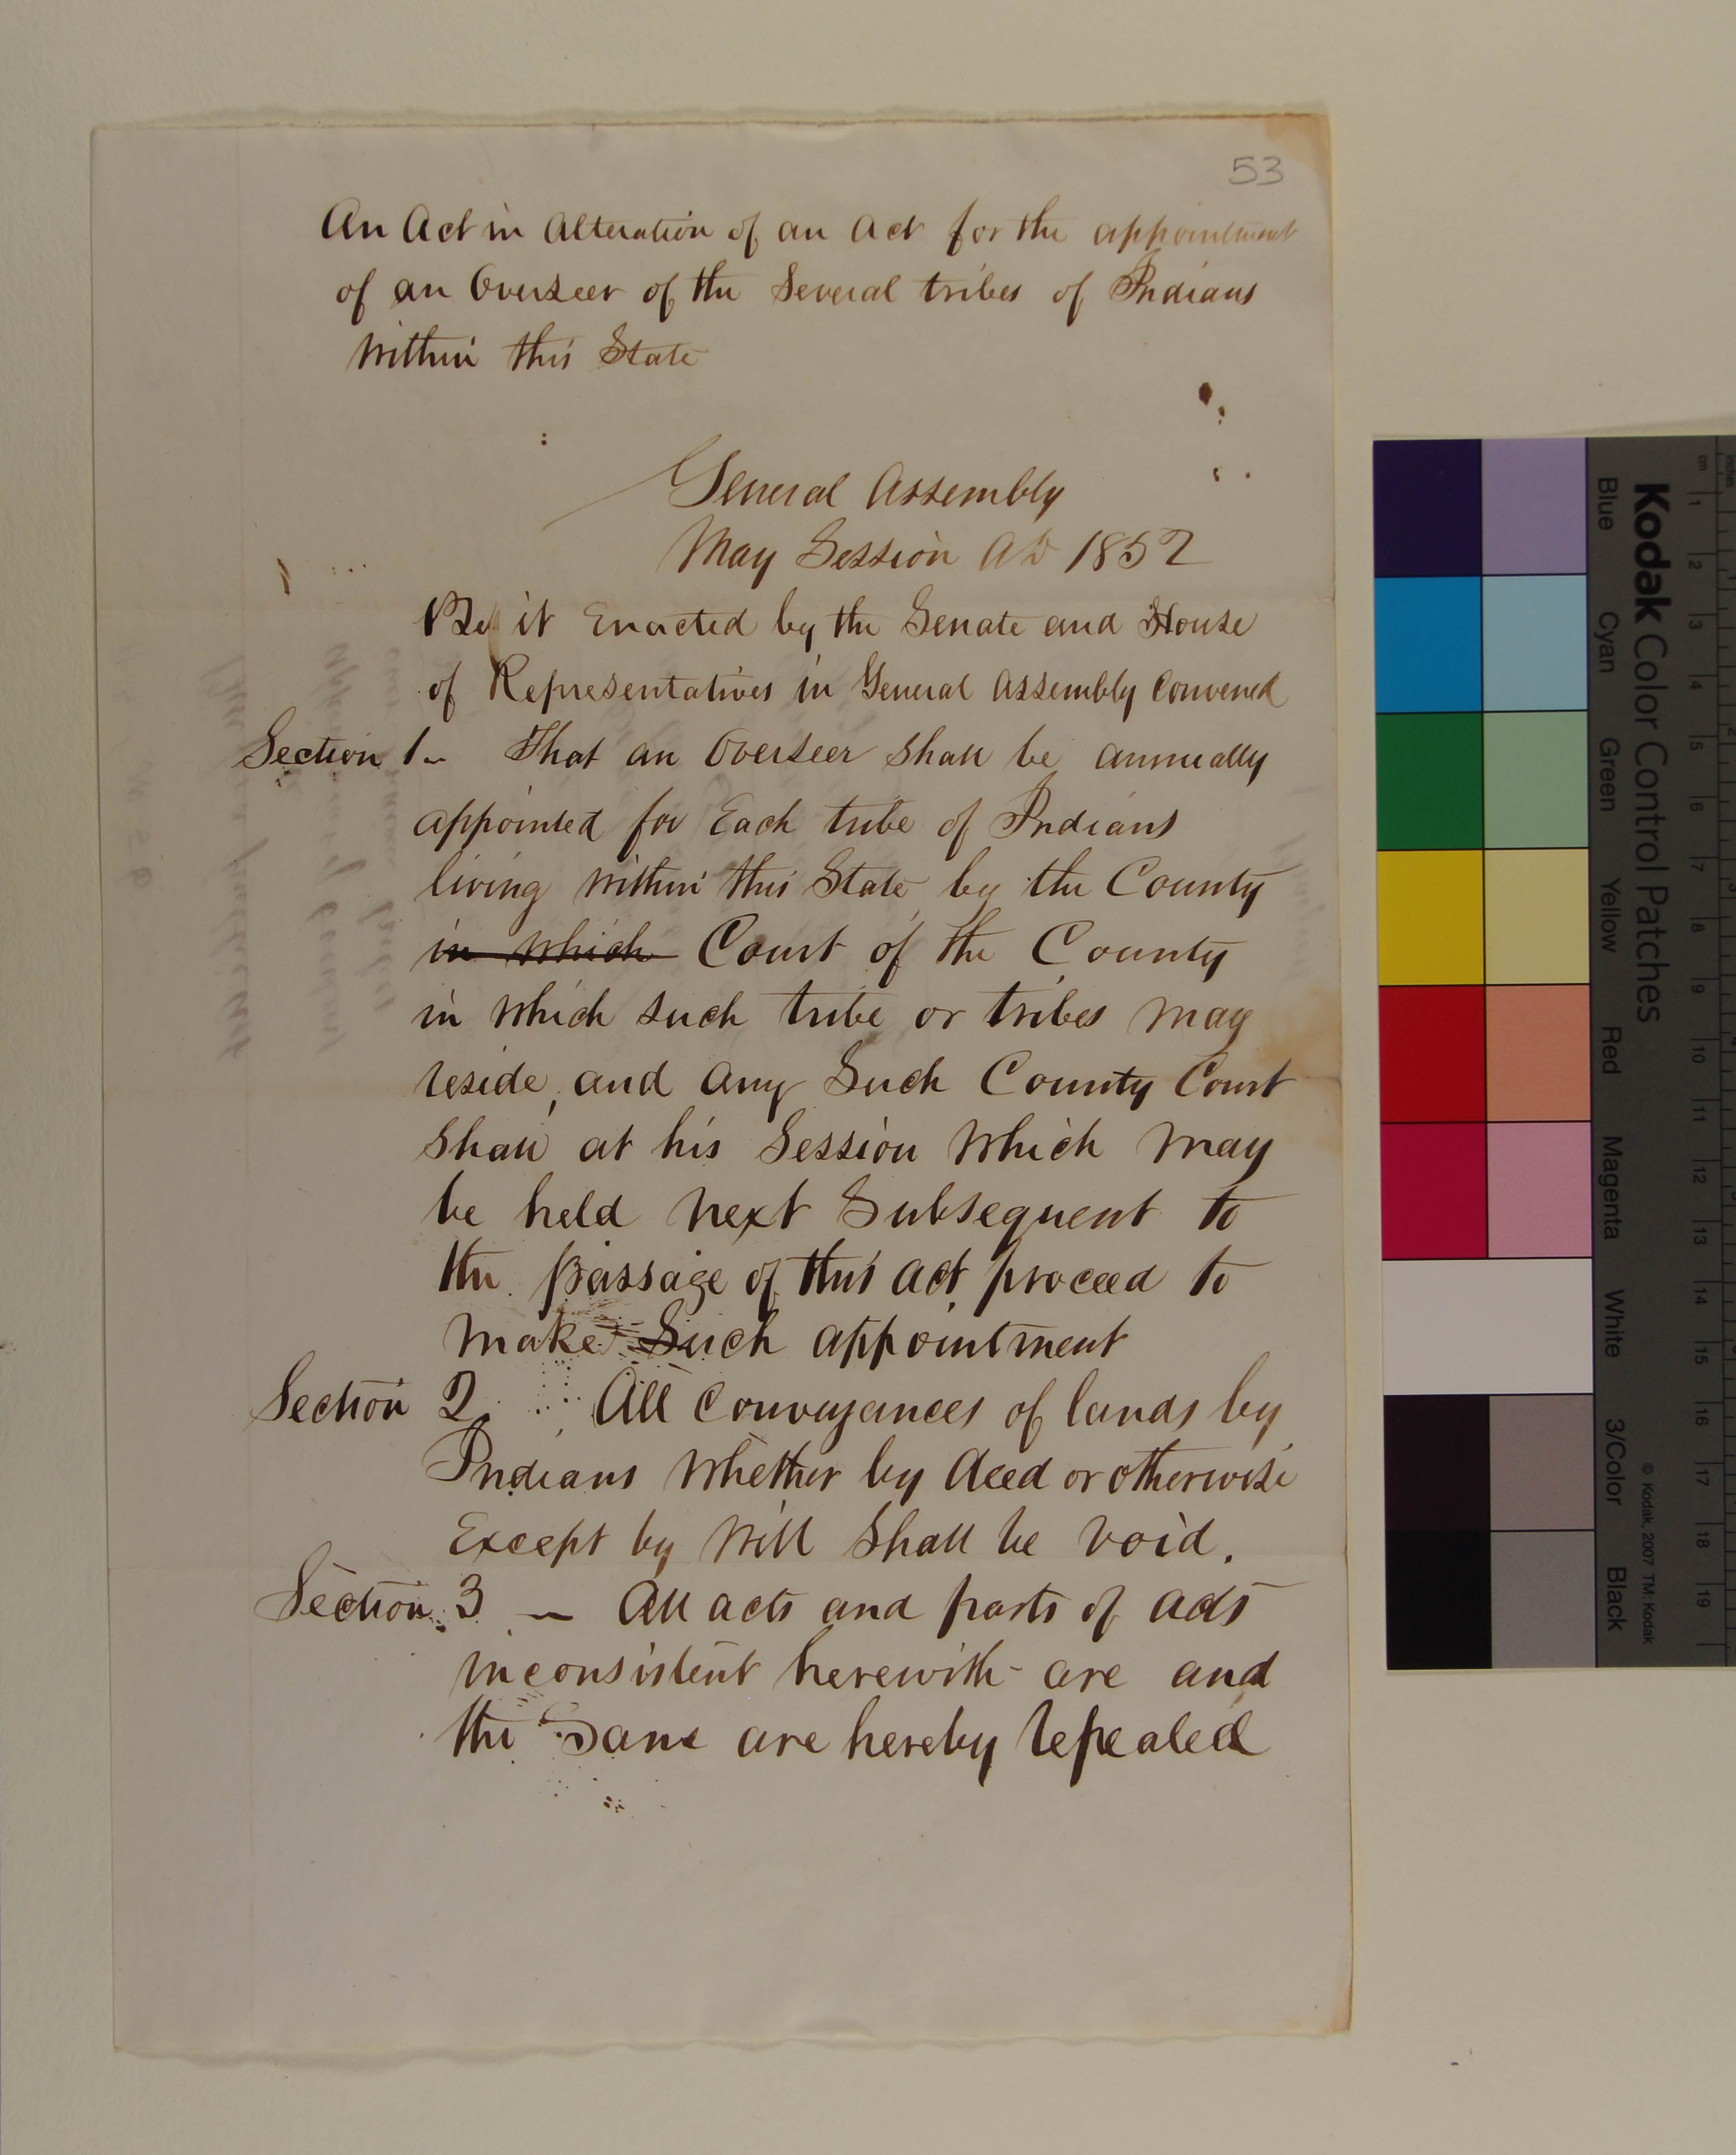 53
An Act in Alteration of an Act for the appointment
of an Overseer of the Several tribes of Indians
Within this State
General Assembly
May Session AD 1852
Be it Enacted by the Senate and House
of Representatives in General Assembly Convened
Section 1 - That an Overseer Shall be annually
appointed for Each tribe of Indians
living within this State by the County
in which Court of the County
in which such tribe or tribes may
reside, and any Such County Court
Shall at his Session which may
be held next Subsequent to
the passage of this act proceed to
make Such appointment
Section 2. All Conveyances of lands by
Indians whether by deed or otherwise
Except by Will Shall be void.
Section 3 - All acts and parts of acts
inconsistent herewith are and
the Same are hereby repealed
Kodak Color Control Patches
Blue Cyan Green Yellow Red Magenta White 3/Color Black
© Kodak, 2007 TM: Kodak
cm 1 2 3 4 5 6 7 8 9 10 11 12 13 14 15 16 17 18 19
inches